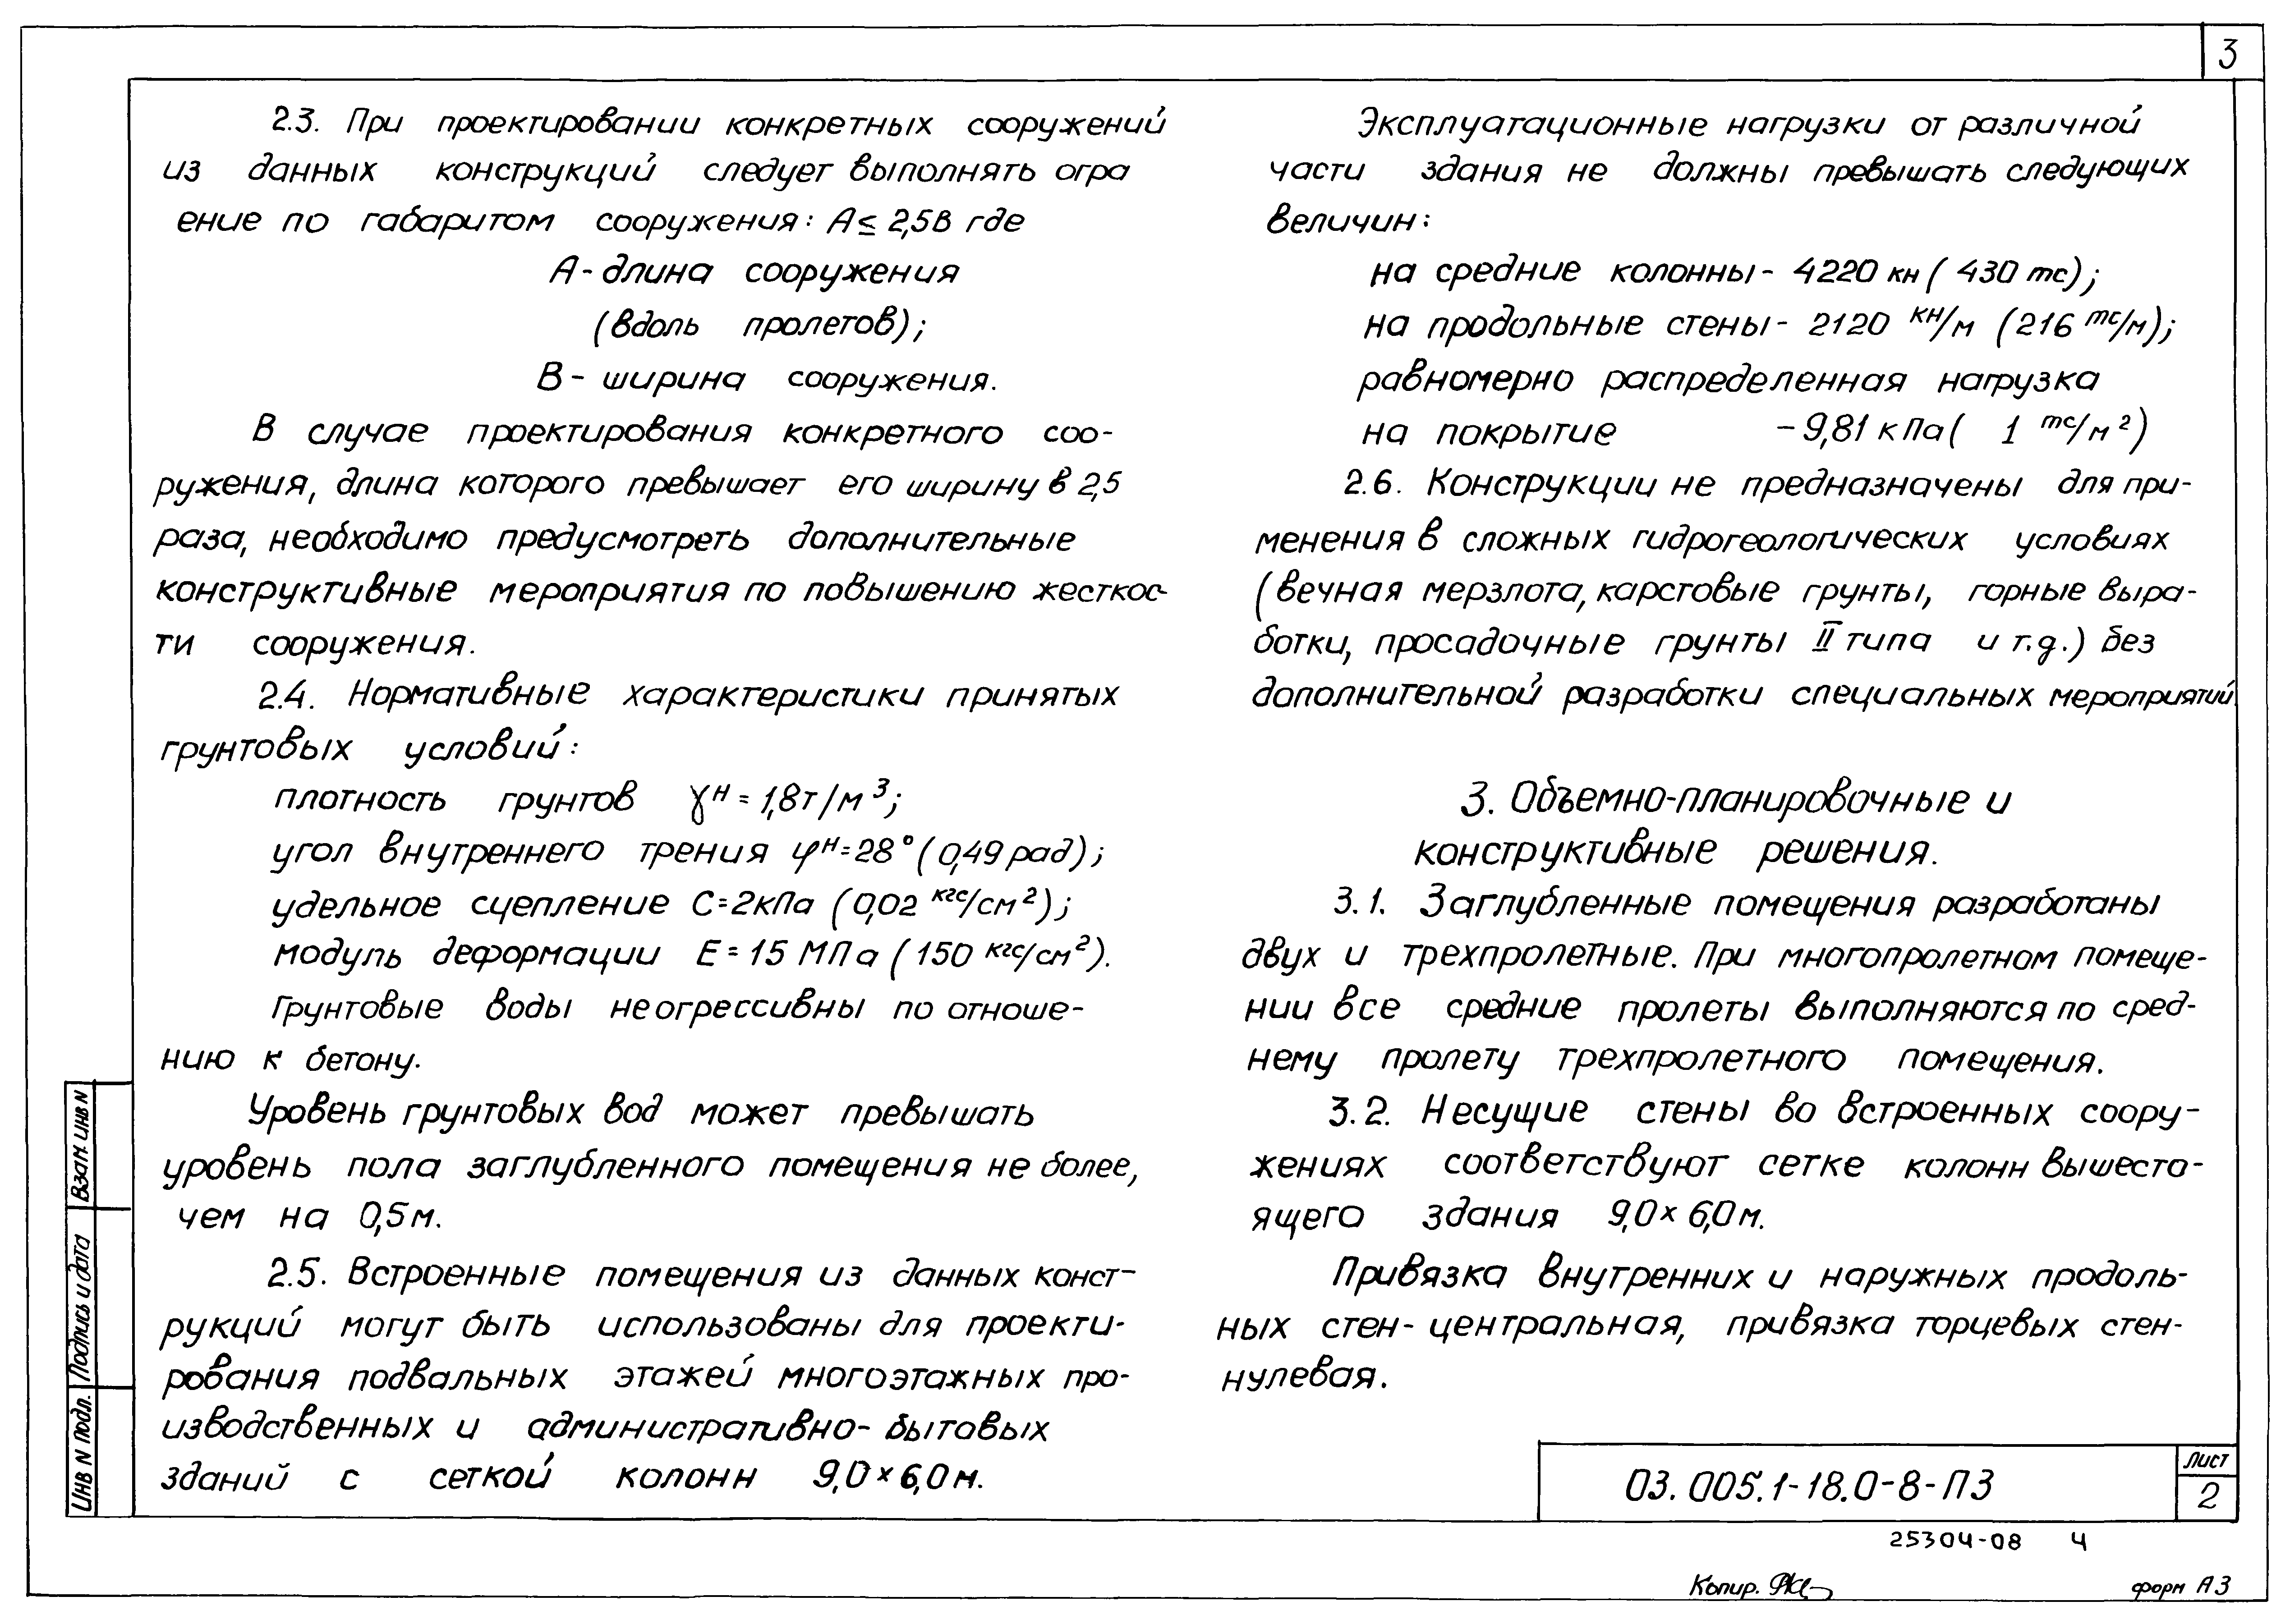 3
2.3. При проектировании конкретных сооружений
из данных конструкций следует выполнять огра
ение по габаритом сооружения: А ≤ 2,5В где
А - длина сооружения
(вдоль пролетов);
В - ширина сооружения.
В случае проектирования конкретного соо-
ружения, длина которого превышает его ширину в 2,5
раза, необходимо предусмотреть дополнительные
конструктивные мероприятия по повышению жесткос-
ти сооружения.
2.4. Нормативные характеристики принятых
грунтовых условий:
плотность грунтов γᴴ = 1,8 т/м³;
угол внутреннего трения φᴴ = 28° (0,49 рад);
удельное сцепление С = 2 кПа (0,02 кгс/см²);
модуль деформации Е = 15 МПа (150 кгс/см²).
Грунтовые воды неогрессивны по отноше-
нию к бетону.
Уровень грунтовых вод может превышать
уровень пола заглубленного помещения не более,
чем на 0,5 м.
2.5. Встроенные помещения из данных конст-
рукций могут быть использованы для проекти-
рования подвальных этажей многоэтажных про-
изводственных и административно-бытовых
зданий с сеткой колонн 9,0 × 6,0 м.
Эксплуатационные нагрузки от различной
части здания не должны превышать следующих
величин:
на средние колонны - 4220 кн (430 тс);
на продольные стены - 2120 кн/м (216 тс/м);
равномерно распределенная нагрузка
на покрытие - 9,81 кПа ( 1 тс/м²)
2.6. Конструкции не предназначены для при-
менения в сложных гидрогеологических условиях
(вечная мерзлота, карстовые грунты, горные выра-
ботки, просадочные грунты II типа и т.д.) без
дополнительной разработки специальных мероприятий.
3. Объемно-планировочные и
конструктивные решения.
3.1. Заглубленные помещения разработаны
двух и трехпролетные. При многопролетном помеще-
нии все средние пролеты выполняются по сред-
нему пролету трехпролетного помещения.
3.2. Несущие стены во встроенных соору-
жениях соответствуют сетке колонн вышесто-
ящего здания 9,0 × 6,0 м.
Привязка внутренних и наружных продоль-
ных стен - центральная, привязка торцевых стен -
нулевая.
Взам. инв N
Подпись и дата
Инв N подл.
03.005.1-18.0-8-ПЗ
Лист
2
25304-08 4
Копир.
форм А3